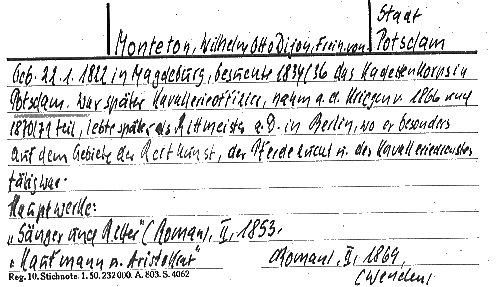 Stadt
Monteton, Wilhelm Otto Dijon, Freih. von Potsdam
Geb. 22. 1. 1822 in Magdeburg, besuchte 1834/36 das Kadettenkorps in
Potsdam. War später Kavallerieoffizier, nahm a. d. Kriegen v. 1866 und
1870/71 teil, lebte später als Rittmeister a. D. in Berlin, wo er besonders
auf dem Gebiete der Reitkunst, der Pferdezucht u. des Kavalleriedienstes
tätig war.
Hauptwerke:
„Sänger und Ritter" (Roman), II, 1853.
„Kaufmann u. Aristokrat" (Roman), II, 1869,
(Wenden)
Reg. 10. Stichnote. 1. 50. 232 000. A. 803. S. 4062